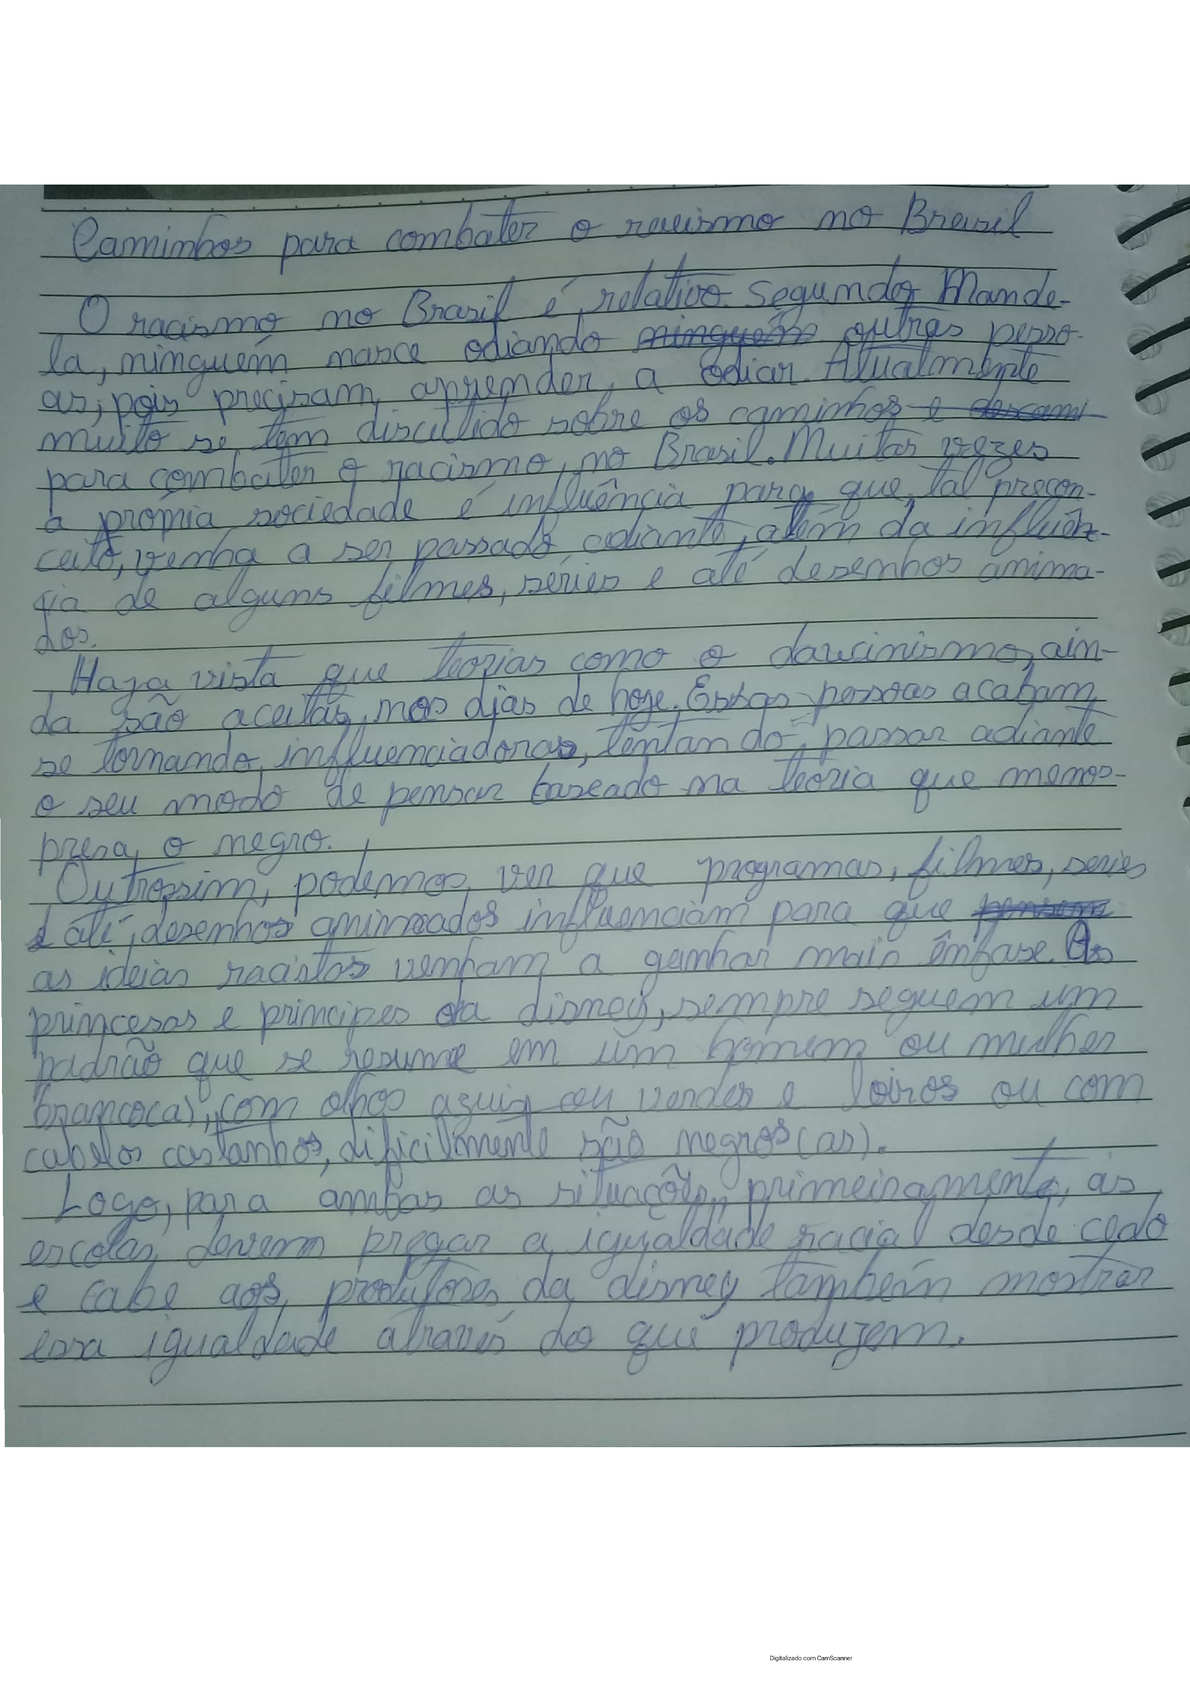 Caminhos para combater o racismo no Brasil
O racismo no Brasil é relativo segundo Mande-
la, ninguém nasce odiando ninguém outras pesso-
as, pois precisam aprender, a odiar. Atualmente
muito se tem discutido sobre os caminhos e
para combater o racismo, no Brasil. Muitas vezes
a própria sociedade é influência para que tal precon-
ceito, venha a ser passado adiante, além da influên-
cia de alguns filmes, séries e até desenhos anima-
dos.
Haja vista que teorias como o darwinismo, ain-
da são aceitas, nos dias de hoje. Essas pessoas acabam
se tornando, influenciadoras, tentando, passar adiante
o seu modo de pensar baseado na teoria que menos-
presa, o negro.
Outrossim, podemos, ver que programas, filmes, series
e até, desenhos animados influenciam para que
as ideias racistas venham a ganhar mais ênfase. As
princesas e principes da disney, sempre seguem um
padrão que se resume em um homem ou mulher
branco(a), com olhos azuis ou verdes e loiros ou com
cabelos castanhos, dificilmente são negros(as).
Logo, para ambas as situações, primeiramente, as
escolas, devem pregar a igualdade racial desde cedo
e cabe aos, produtores, da disney também mostrar
essa igualdade através do que produzem.
Digitalizado com CamScanner